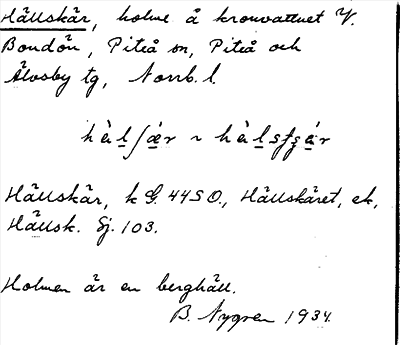 Hällskär, holme å kronvattnet V.
Bondön, Piteå sn, Piteå och
Älvsby tg, Norrb. l.
Hällskär, k G. 44 S O., Hällskäret, ek,
Hällsk. Sj. 103.
Holmen är en berghäll.
B. Nygren 1934.